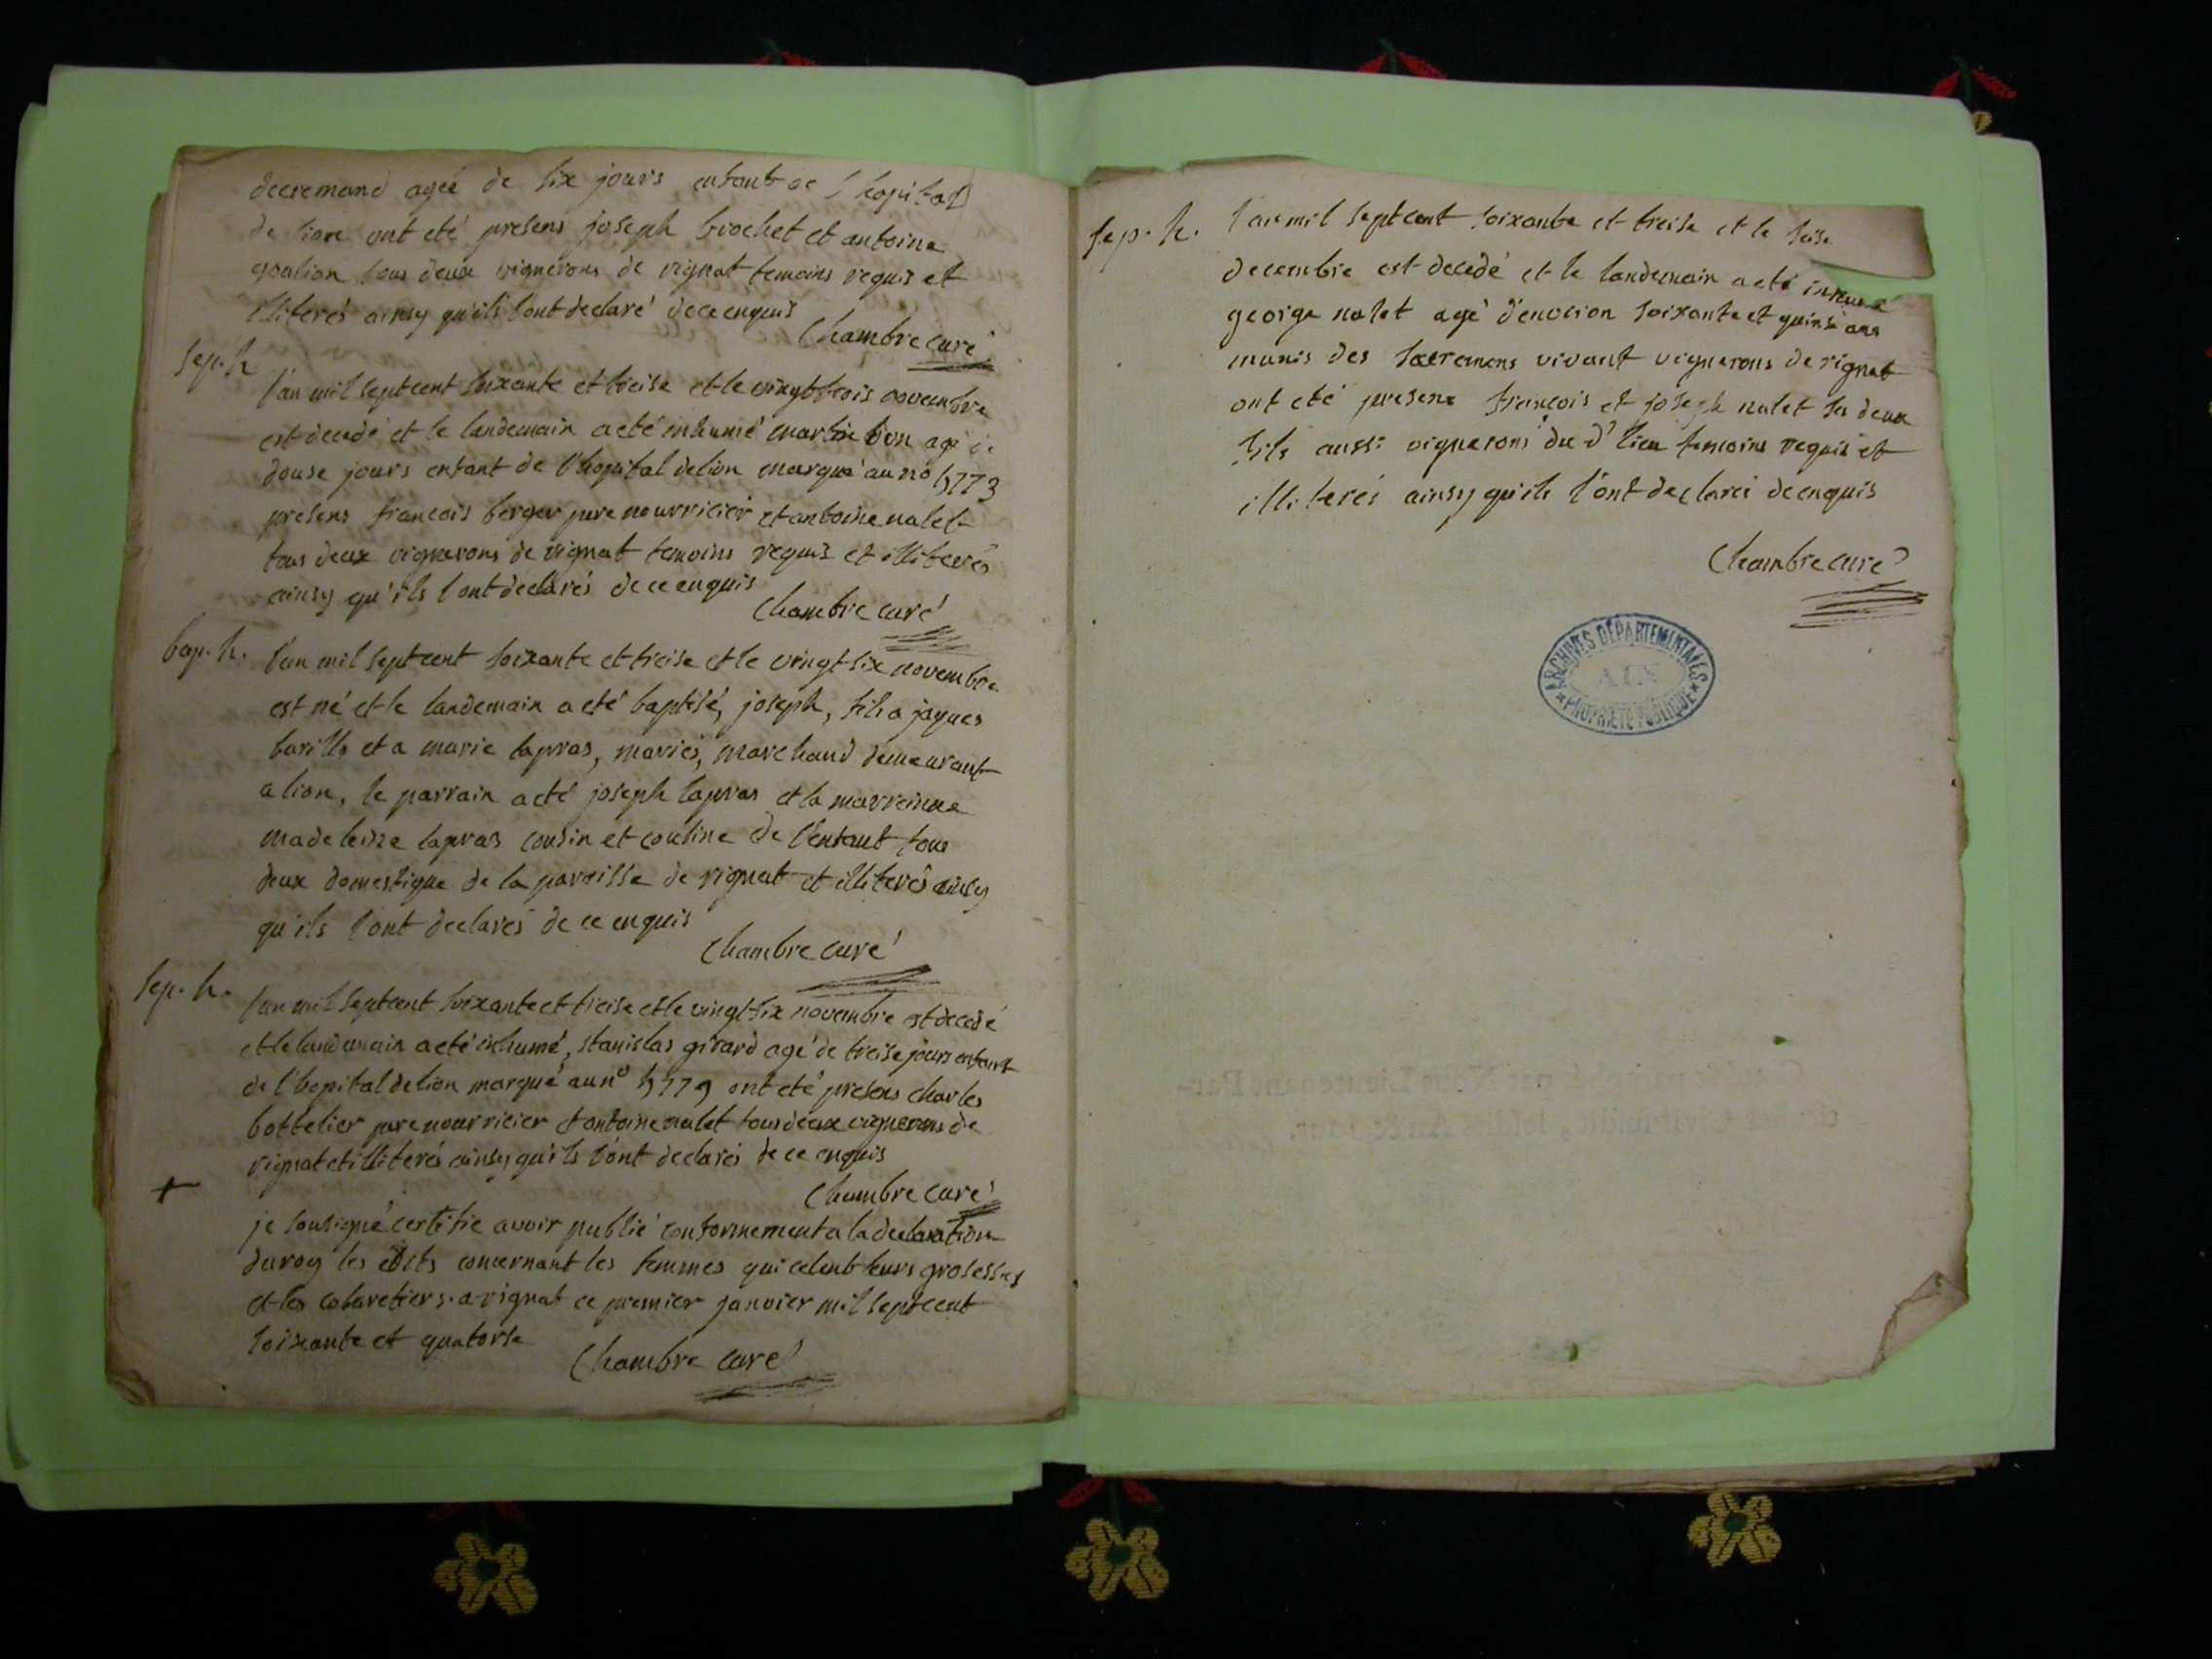 decremand ageé de six jours enfant de l'hopital
de lion ont eté presens joseph brochet et antoine
goalion tous deux vignerons de rignat temoins requis et
illiterés ainsy qu'ils l'ont declaré de ce enquis
Chambre curé
sep. h
l'an mil sept cent soixante et treise et le vingt trois novembre
est decedé et le landemain a eté inhumé martin bon agé de
douse jours enfant de l'hopital de lion marqué au no 5773
presens francois berger pere nourricier et antoine nalet
tous deux vignerons de rignat temoins requis et illiterés
ainsy qu'ils l'ont declarés de ce enquis
Chambre curé
bap. h.
l'an mil sept cent soixante et treise et le vingt six novembre
est né et le landemain a eté baptisé, joseph, fils a jaques
barillo et a marie lapras, mariés, marchand demeurant
a lion, le parrain a eté joseph lapras et la marreinne
madeleine lapras cousin et cousine de l'enfant tous
deux domestique de la paroisse de rignat et illiterés ainsy
qu'ils l'ont declarés de ce enquis
Chambre curé
sep. h.
l'an mil sept cent soixante et treise et le vingt six novembre est decedé
et le landemain a eté inhumé, stanislas girard agé de treise jours enfant
de l'hopital de lion marqué au no 5779 ont eté presens charles
bottelier pere nourricier et antoine nalet tous deux vignerons de
rignat et illiterés ainsy qu'ils l'ont declarés de ce enquis
Chambre curé
+
je sousigné certifie avoir publié conformement a la declaration
du roy les edits concernant les femmes qui celent leurs grosesses
et les cabaretiers. a rignat ce premier janvier mil sept cent
soixante et quatorse
Chambre curé
sep. h.
l'an mil sept cent soixante et treise et le seise
decembre est decedé et le landemain a eté inhumé
george nalet agé d'environ soixante et quinse ans
munis des sacremens vivant vignerons de rignat
ont eté presens francois et joseph nalet ses deux
fils aussi vignerons du d' lieu temoins requis et
illiterés ainsy qu'ils l'ont declarés de enquis
Chambre curé
ARCHIVES DÉPARTEMENTALES
AIN
PROPRIÉTÉ PUBLIQUE